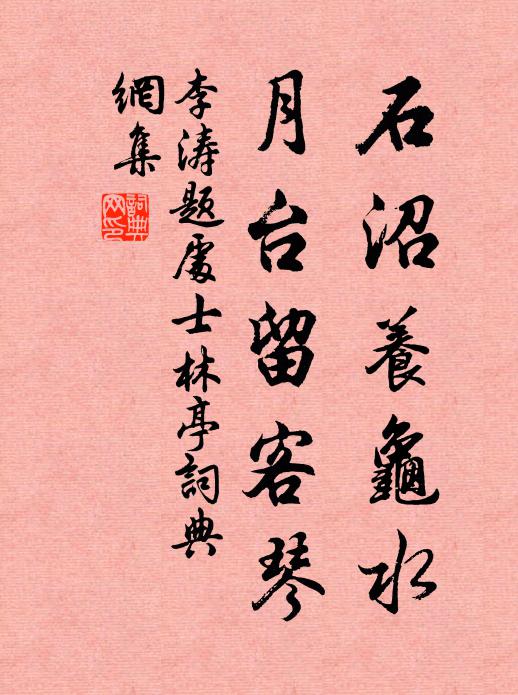 石沼養龜水
月台留客琴
李涛题處士林亭詞典
網集
詞典
网印